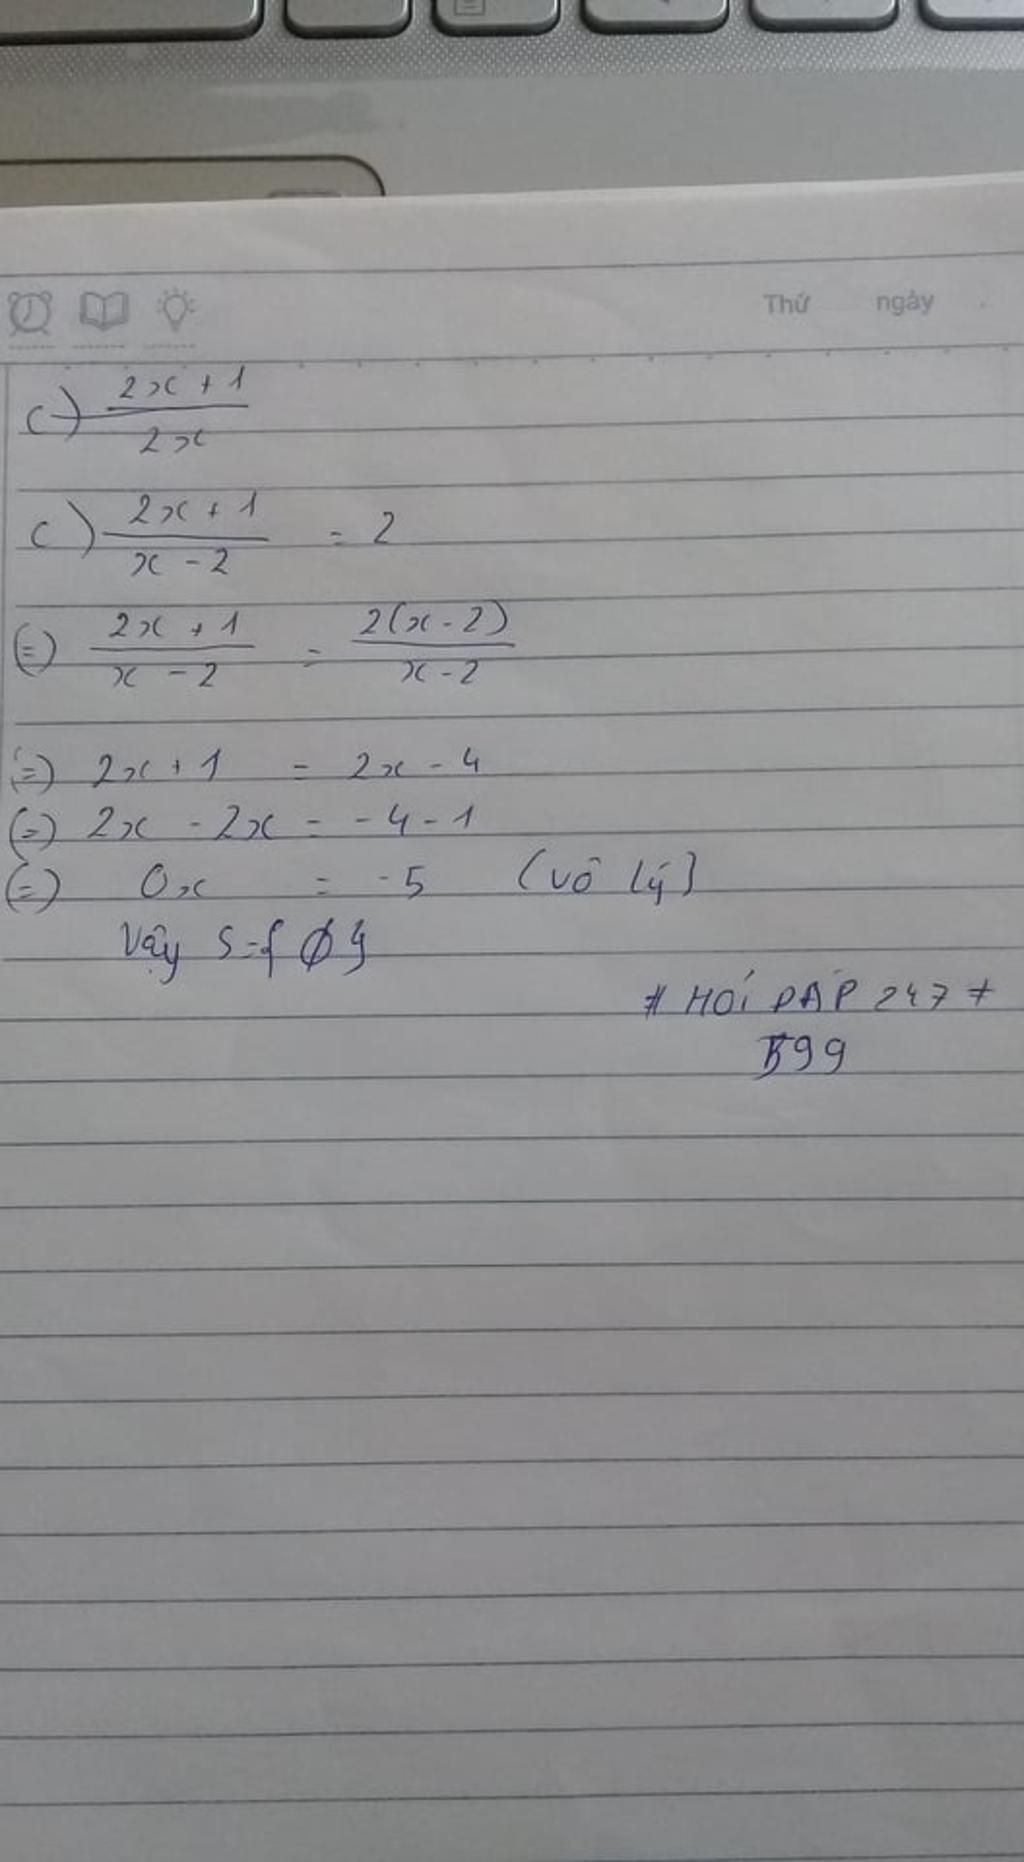 Thứ ngày
c) 2x + 1 / 2x
c) 2x + 1 / x - 2 = 2
(=) 2x + 1 / x - 2 = 2(x - 2) / x - 2
(=) 2x + 1 = 2x - 4
(=) 2x - 2x = -4 - 1
(=) 0x = -5 (vô lý)
Vậy S = { Ø }
# HỎI ĐÁP 247 #